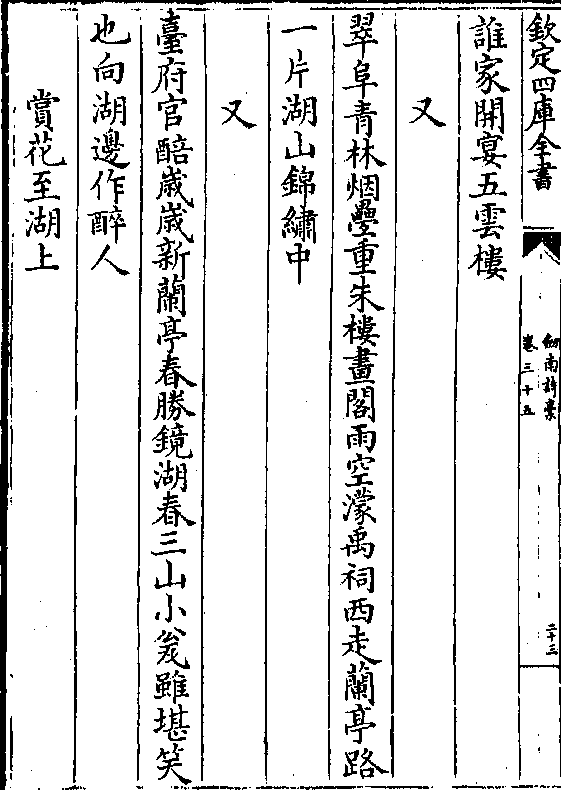 欽定四庫全書
劒南詩槀
卷三十五
二十三
誰家開宴五雲樓
又
翠阜青林烟疊重朱樓畫閣雨空濛禹祠西走蘭亭路
一片湖山錦繡中
又
臺府官醅嵗嵗新蘭亭春勝鏡湖春三山小叟雖堪笑
也向湖邊作醉人
賞花至湖上